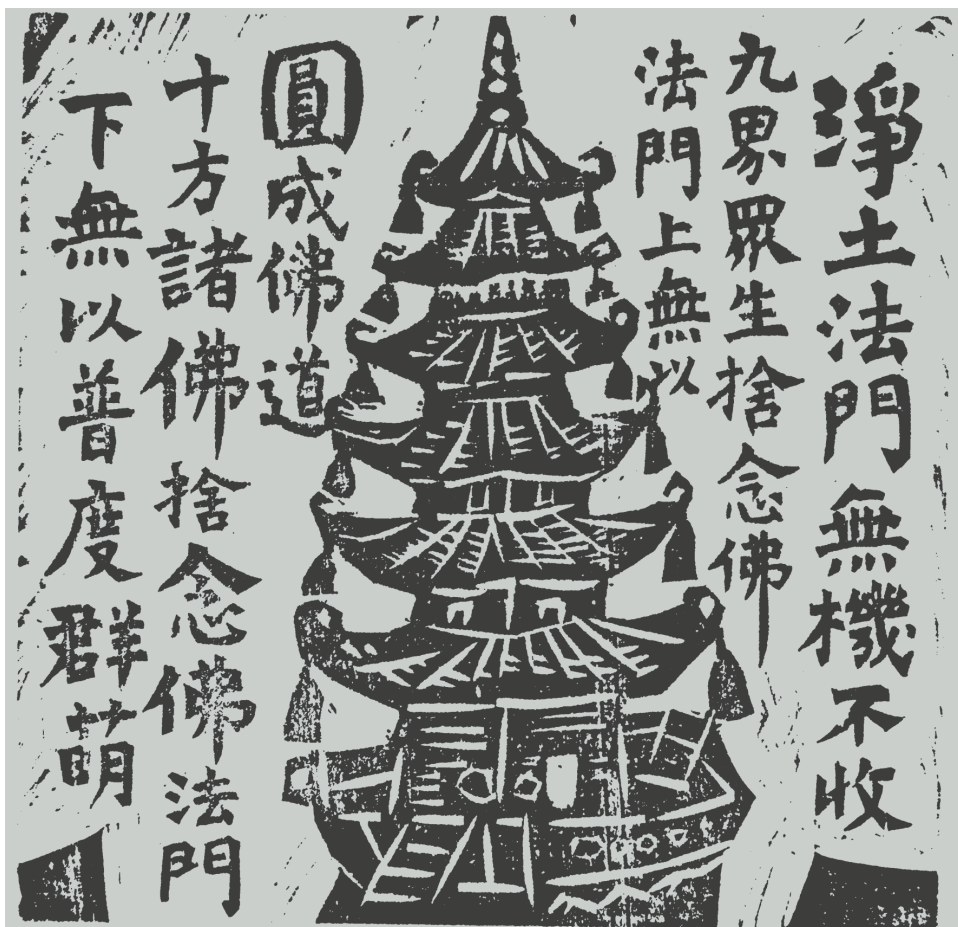 淨土法門無機不收
九界眾生捨念佛
法門上無以
圓成佛道
十方諸佛捨念佛法門
下無以普度群萌